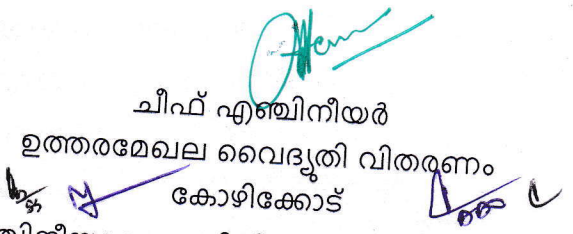 ചീഫ് എഞ്ചിനീയർ
ഉത്തരമേഖല വൈദ്യുതി വിതരണം
കോഴിക്കോട്